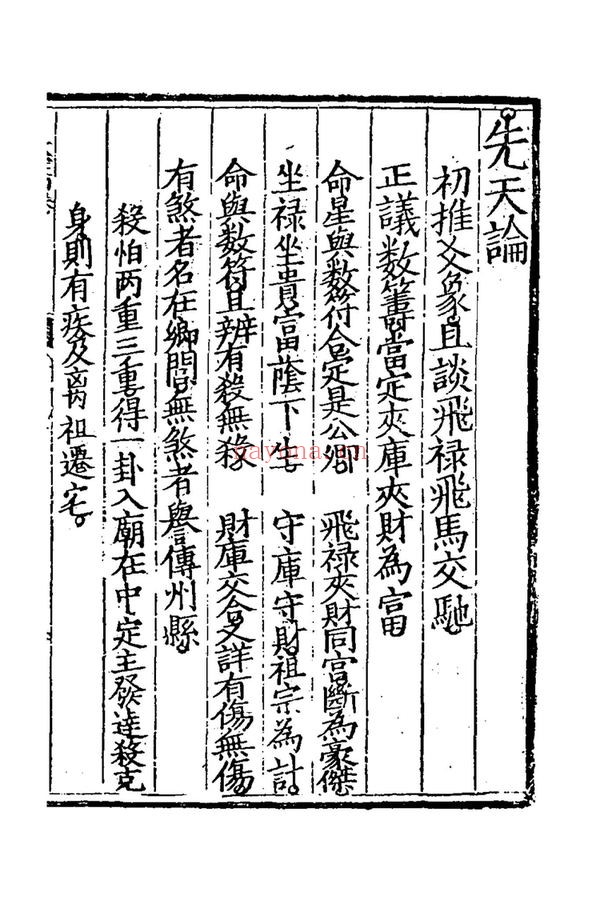 先天論
初推爻象且談飛禄飛馬交馳
正議數籌當定夾庫夾財為富
命星與數符合定是公卿 飛禄夾財同宫斷為豪傑
坐禄坐貴富蔭下生 守庫守財祖宗為計
命與數符且辨有殺無祿 財庫交合又詳有傷無傷
有煞者名在鄉閭無煞者譽傳州縣
殺怕两重三重得一卦入廟在中定主發達殺克
身則有疾及离祖遷宅
nayona.cn